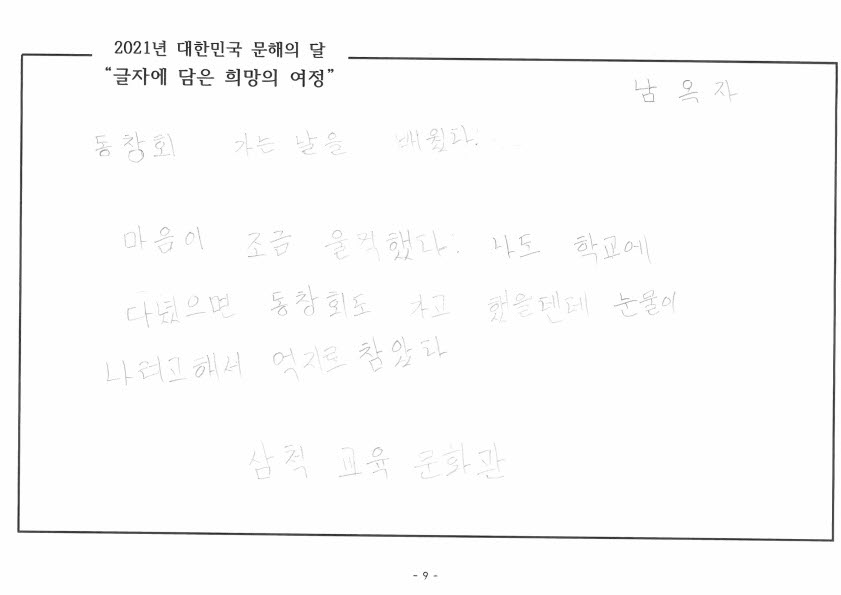 2021년 대한민국 문해의 달
“글자에 담은 희망의 여정”
남옥자
동창회 가는 날을 배웠다.
마음이 조금 울적했다. 나도 학교에
다녔으면 동창회도 가고 했을텐데 눈물이
나려고해서 억지로 참았다
삼척 교육 문화관
- 9 -